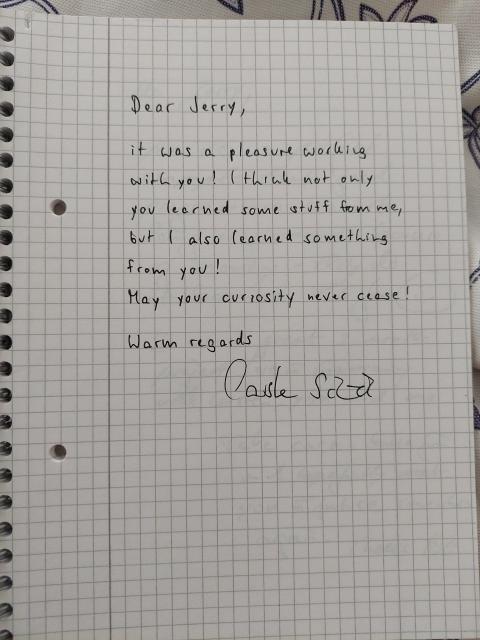 Dear Jerry,
it was a pleasure working
with you! I think not only
you learned some stuff fom me,
but I also learned something
from you!
May your curiosity never cease!
Warm regards